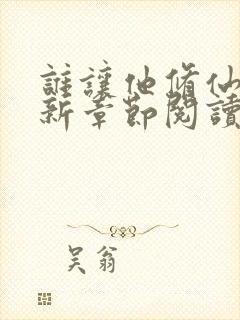 誰讓他修仙
新章節閱讀
吴翁